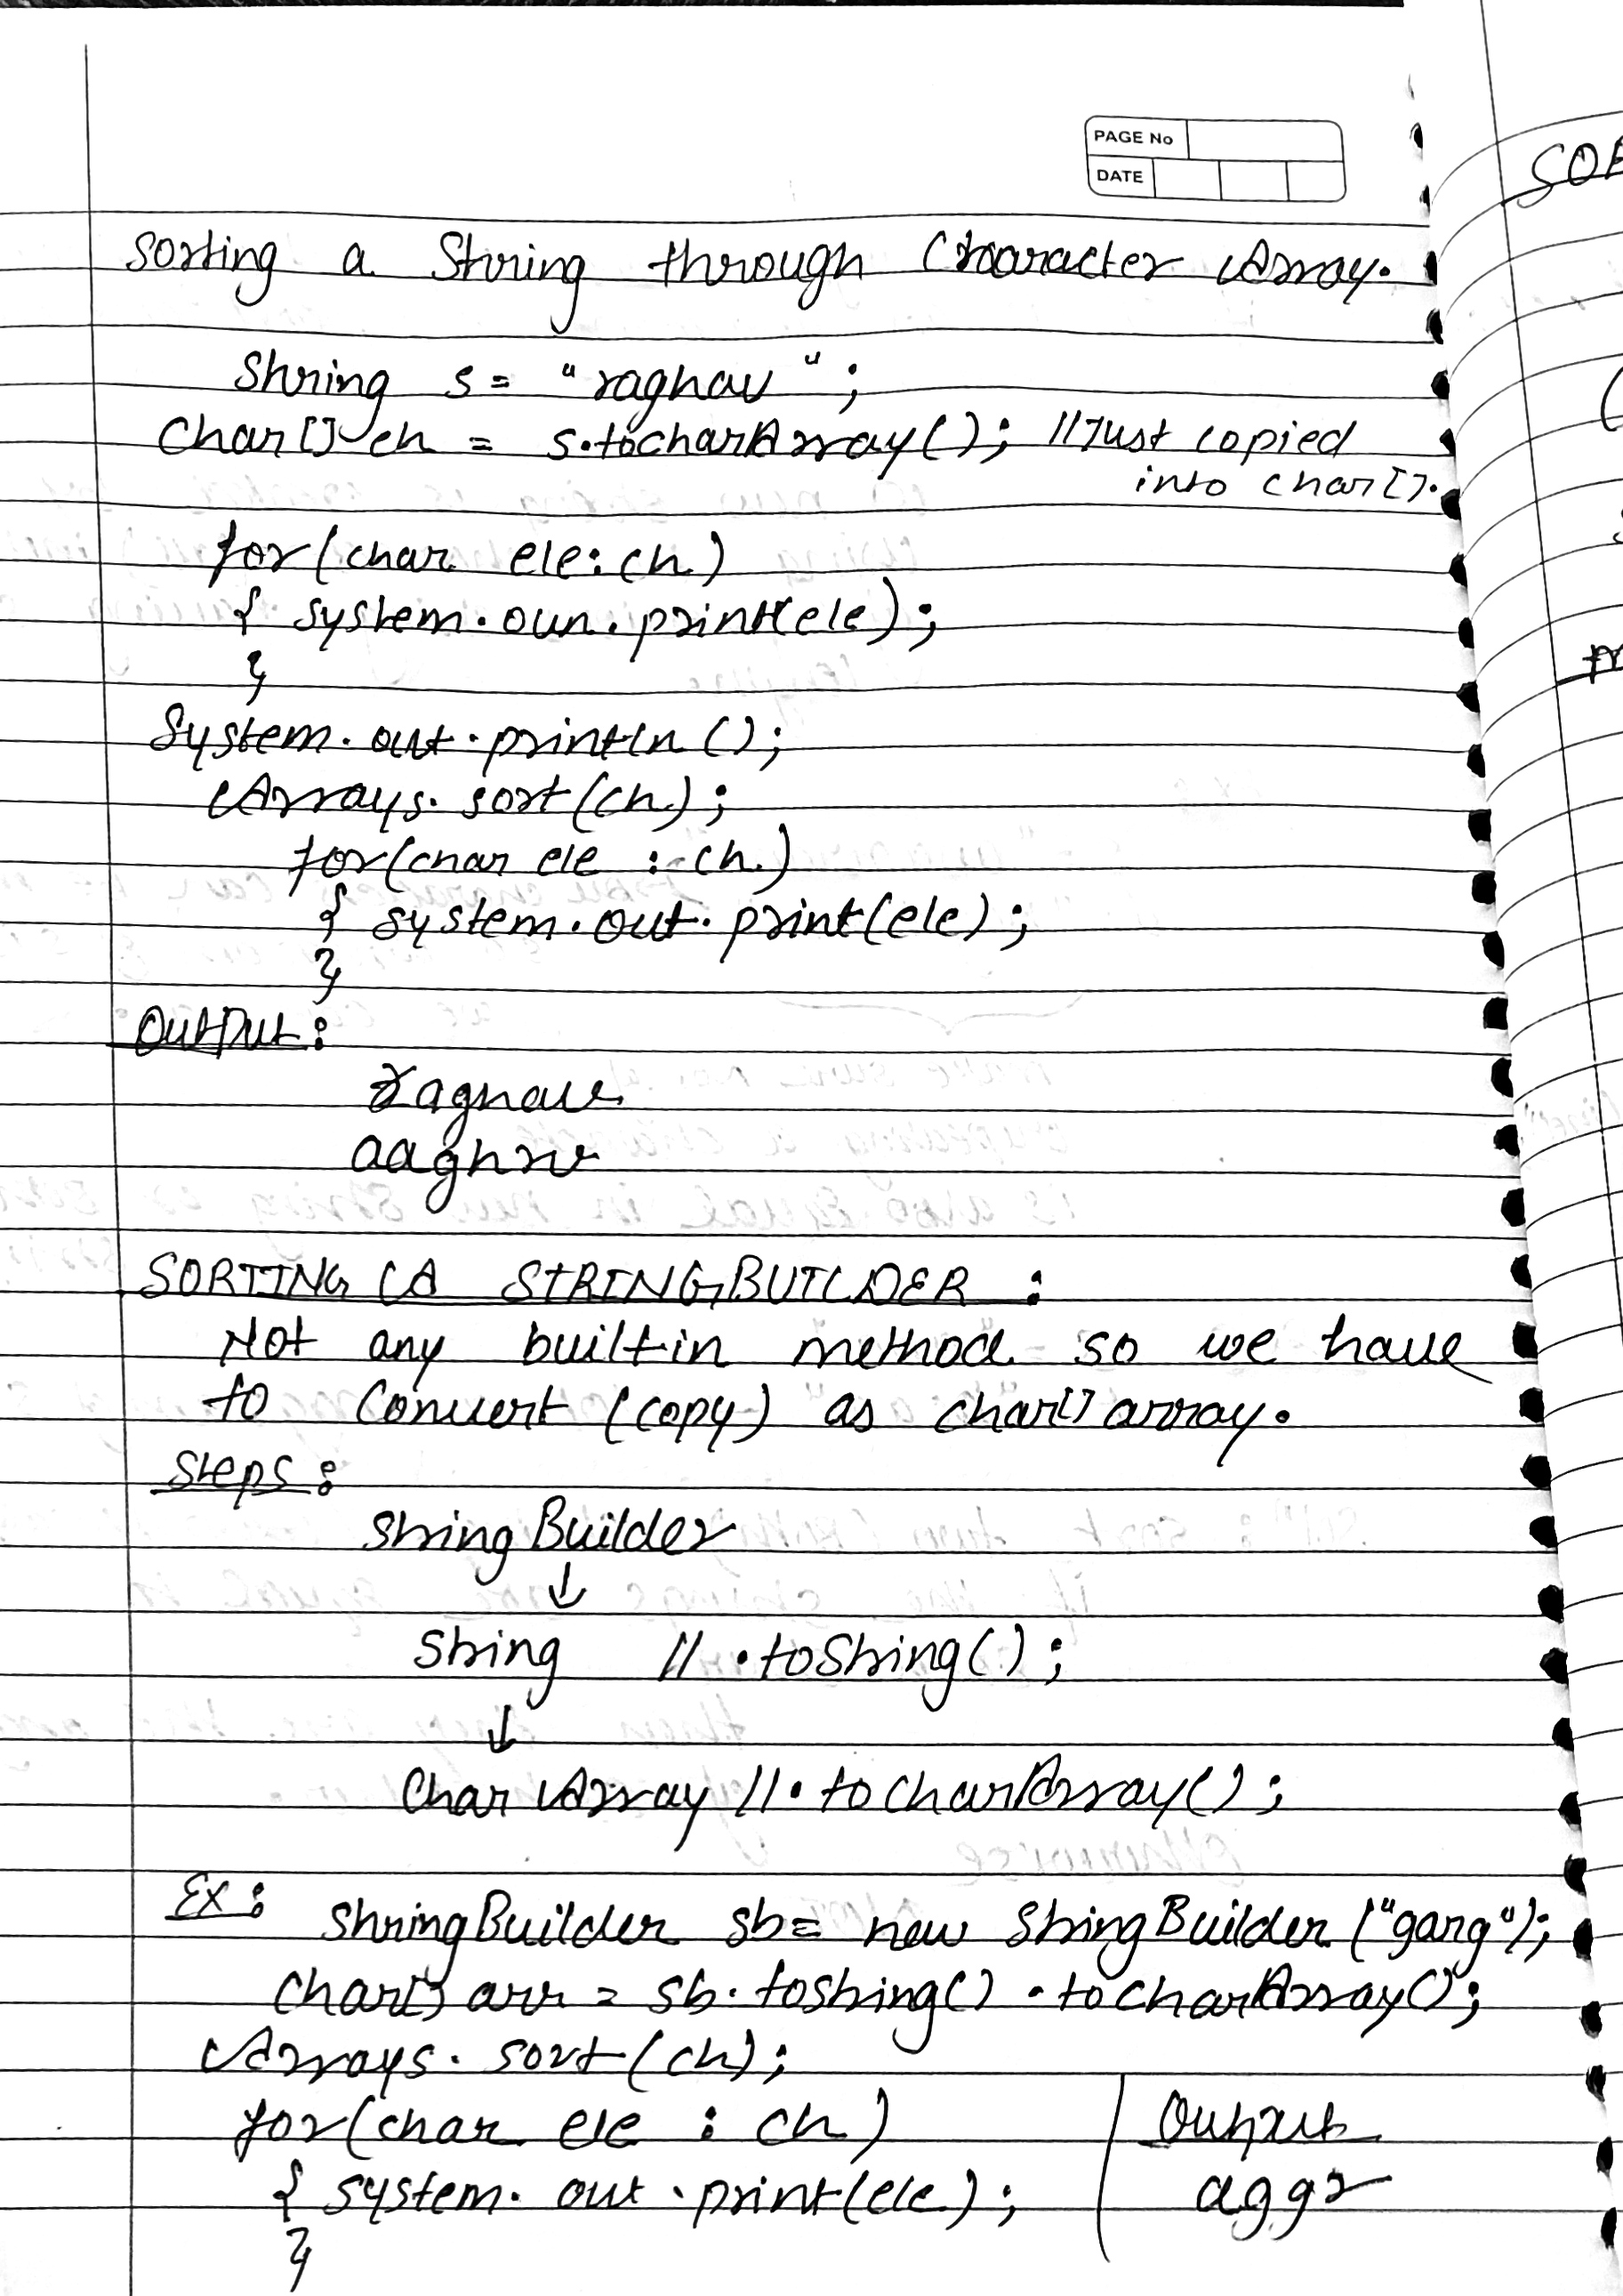 PAGE No
DATE
Sorting a String through Character Array.
String s = "raghav";
Char[] ch = s.tocharArray(); //Just copied
into char[].
for(char ele: ch)
{ system.oun.print(ele);
}
System.out.println();
Arrays.sort(ch);
for(char ele : ch)
{ system.out.print(ele);
}
OUTPUT:
raghav
aaghrv
SORTING A STRINGBUILDER :
Not any built-in method so we have
to Convert (copy) as char[] array.
Steps:
String Builder
↓
String // .toString();
↓
Char Array //.to charArray();
Ex: StringBuilder sb= new String Builder ("garg");
Char[] arr = sb.toString().to charArray();
Arrays.sort(ch);
for(char ele : ch)
{ system.out.print(ele);
}
Output
aggr
SO